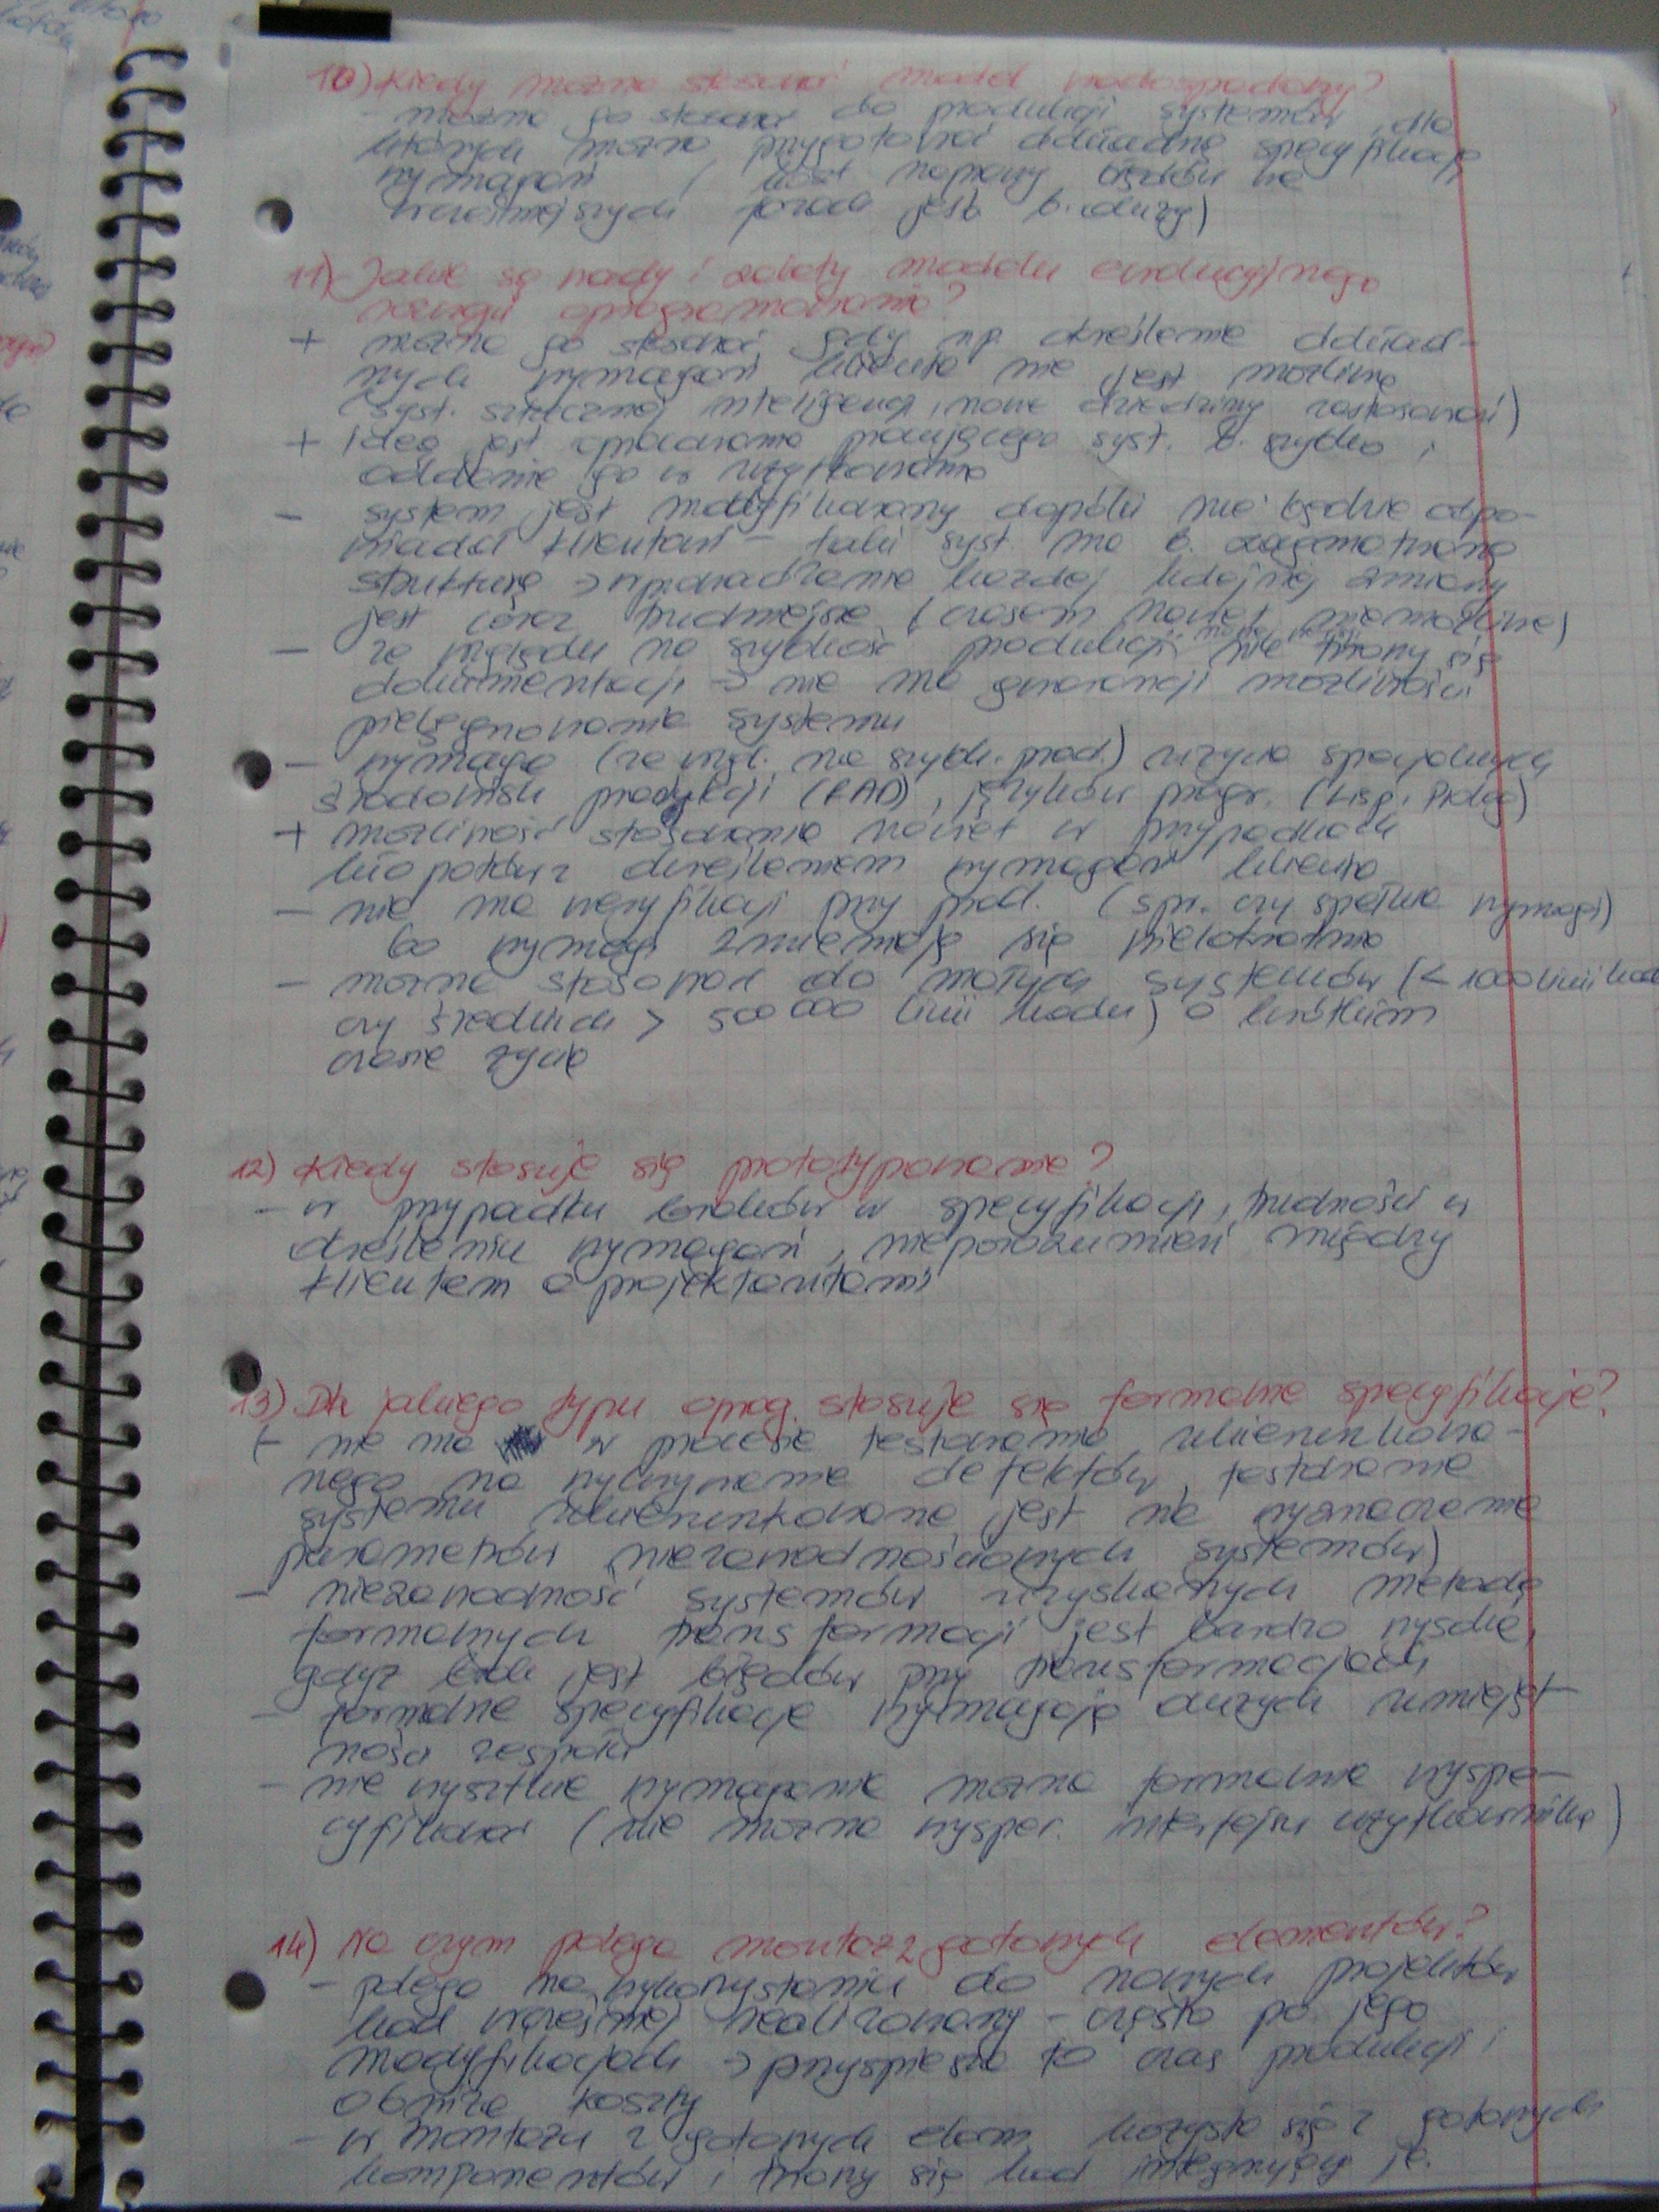 10) Kiedy można stosować model wodospadowy?
- można go stosować do produkcji systemów, dla
których można przygotować dokładną specyfikację
wymagań (koszt naprawy błędów we
wcześniejszych fazach jest b. duży)
11) Jakie są wady i zalety modelu ewolucyjnego
rozwoju oprogramowania?
+ można go stosować, gdy np. określenie dokład-
nych wymagań klienta nie jest możliwe
(syst. sztucznej inteligencji, nowe dziedziny zastosowań)
+ ideą jest opracowanie pracującego syst. b. szybko i
oddanie go w użytkowanie
- system jest modyfikowany dopóki nie będzie odpo-
wiadał klientowi - taki syst. ma b. zagmatwaną
strukturę -> wprowadzanie każdej kolejnej zmiany
jest coraz trudniejsze (czasem nawet niemożliwe)
- ze względu na szybkość produkcji nie tworzy się
dokumentacji -> nie ma gwarancji możliwości
pielęgnowania systemu
- wymaga (ze wzgl. na szybk. prod.) użycia specjalnych
środowisk produkcji (RAD), języków progr. (Lisp, Prolog)
+ możliwość stosowania nawet w przypadkach
kłopotów z określeniem wymagań klienta
- nie ma weryfikacji przy prod. (spr. czy spełnia wymogi)
bo wymogi zmieniają się wielokrotnie
- można stosować do małych systemów (< 1000 linii kodu
czy średnich > 500 000 linii kodu) o krótkim
czasie życia
12) Kiedy stosuje się prototypowanie?
- w przypadku braków w specyfikacji, trudności w
określeniu wymagań, nieporozumień między
klientem a projektantami
13) Dla jakiego typu oprog. stosuje się formalne specyfikacje?
(- nie ma w procesie testowania ukierunkowa-
nego na wykrywanie defektów, testowanie
systemu ukierunkowane jest na wyznaczenie
parametrów niezawodnościowych systemów)
- niezawodność systemów uzyskanych metodą
formalnych transformacji jest bardzo wysoka,
gdyż brak jest błędów przy transformacjach
- formalne specyfikacje wymagają dużych umiejęt-
ności zespołu
- nie wszystkie wymagania można formalnie wyspe-
cyfikować (nie można wyspec. interfejsu użytkownika)
14) Na czym polega montaż z gotowych elementów?
- polega na wykorzystaniu do nowych projektów
kod wcześniej realizowany - często po jego
modyfikacjach -> przyspiesza to czas produkcji i
obniża koszty
- w montażu z gotowych elem. korzysta się z gotowych
komponentów i tworzy się kod integrujący je.